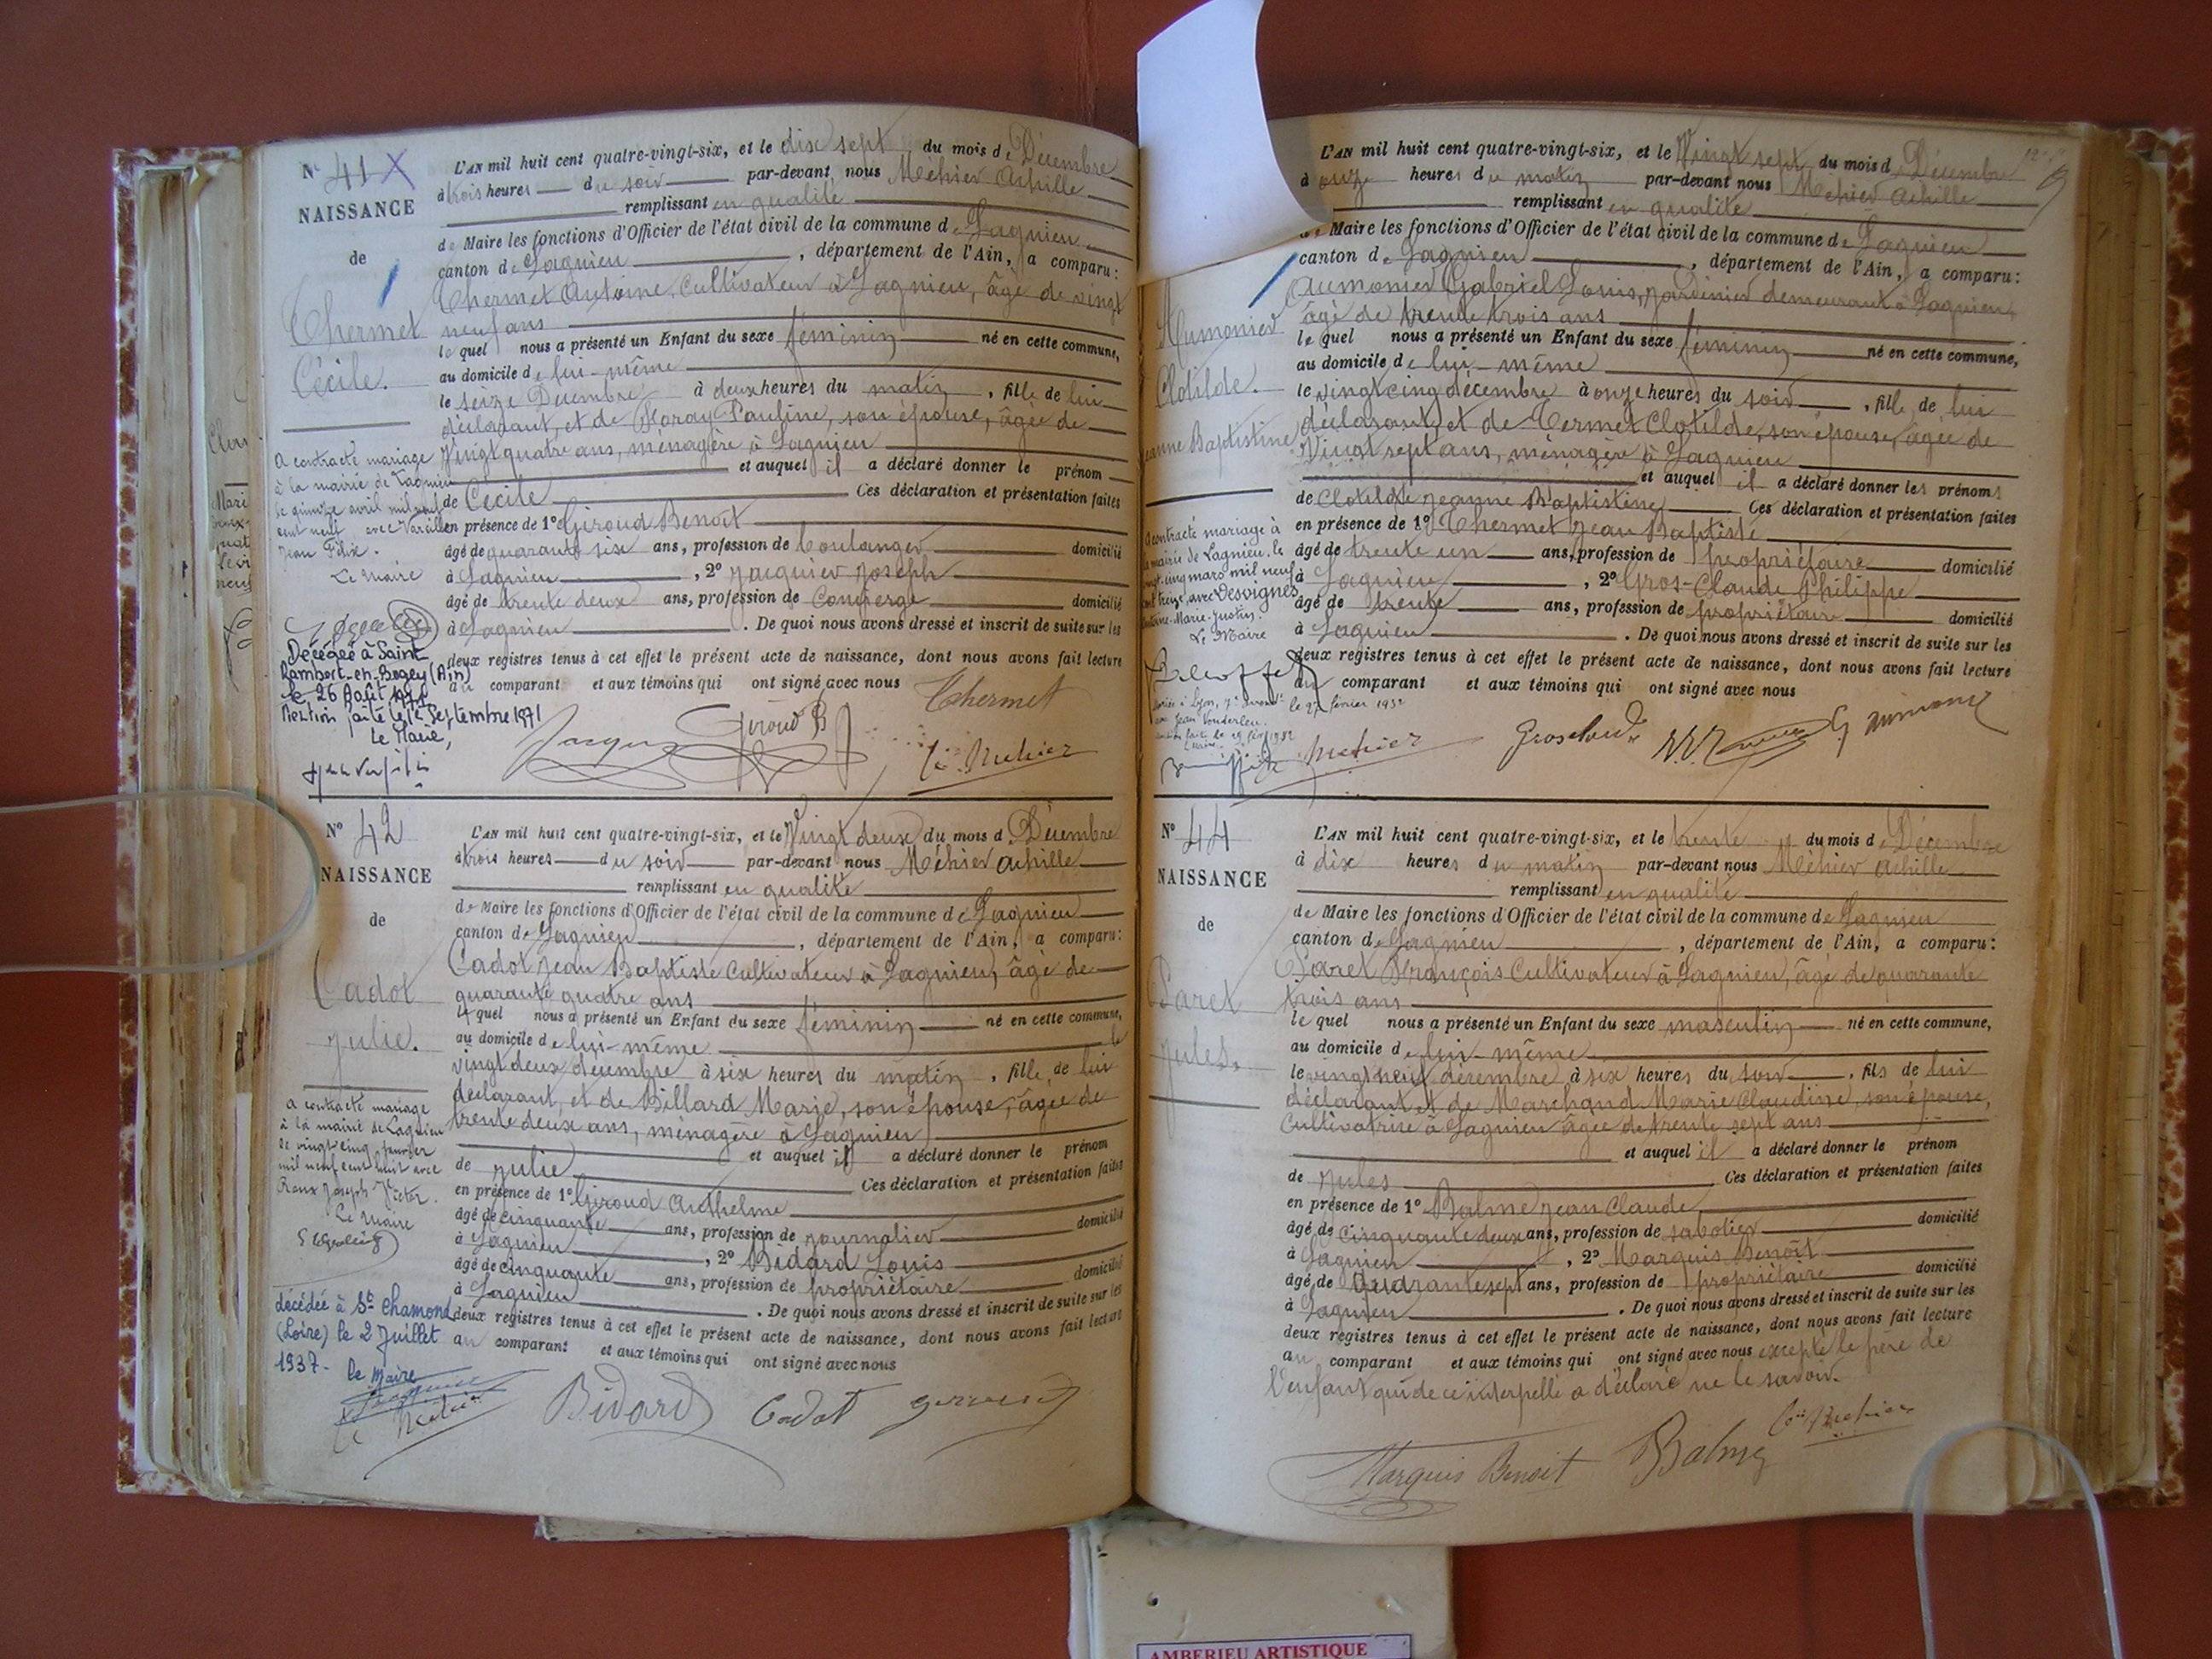 N° 41 X
NAISSANCE
de
Thermet
Cécile.
L'AN mil huit cent quatre-vingt-six, et le dix sept du mois de Décembre
à trois heures du soir par-devant nous Méhier Achille
remplissant en qualité
de Maire les fonctions d'Officier de l'état civil de la commune de Lagnieu
canton de Lagnieu, département de l'Ain, a comparu:
Thermet Antoine, Cultivateur à Lagnieu, âgé de vingt
neuf ans
le quel nous a présenté un Enfant du sexe féminin né en cette commune,
au domicile de lui-même
le seize Décembre à deux heures du matin, fille de lui
déclarant, et de Pauline, son épouse, âgée de
Vingt quatre ans, ménagère à Lagnieu
et auquel il a déclaré donner le prénom
de Cécile Ces déclaration et présentation faites
en présence de 1° Giroud Benoît
âgé de quarante six ans, profession de boulanger domicilié
à Lagnieu, 2° Jacquier Joseph
âgé de trente deux ans, profession de Concierge domicilié
à Lagnieu. De quoi nous avons dressé et inscrit de suite sur les
deux registres tenus à cet effet le présent acte de naissance, dont nous avons fait lecture
au comparant et aux témoins qui ont signé avec nous
Thermet
Giroud B
Méhier
A contracté mariage
à la mairie de Lagnieu
le quinze avril mil neuf
cent neuf avec
Jean Félix.
Le Maire
Décédée à Saint
Rambert-en-Bugey (Ain)
le 26 Août 1971
Mention faite le 1er Septembre 1971
Le Maire,
N° 42
NAISSANCE
de
Cadot
Julie.
L'AN mil huit cent quatre-vingt-six, et le Vingt deux du mois d Décembre
à trois heures du soir par-devant nous Méhier Achille
remplissant en qualité
de Maire les fonctions d'Officier de l'état civil de la commune de Lagnieu
canton de Lagnieu, département de l'Ain, a comparu:
Cadot Jean Baptiste Cultivateur à Lagnieu, âgé de
quarante quatre ans
le quel nous a présenté un Enfant du sexe féminin né en cette commune,
au domicile de lui-même le
vingt deux décembre à six heures du matin, fille de lui
déclarant, et de Billard Marie, son épouse, âgée de
trente deux ans, ménagère à Lagnieu
et auquel il a déclaré donner le prénom
de Julie Ces déclaration et présentation faites
en présence de 1° Giroud Anthelme
âgé de cinquante ans, profession de journalier domicilié
à Lagnieu, 2° Bidard Louis
âgé de cinquante ans, profession de propriétaire domicilié
à Lagnieu. De quoi nous avons dressé et inscrit de suite sur les
deux registres tenus à cet effet le présent acte de naissance, dont nous avons fait lecture
au comparant et aux témoins qui ont signé avec nous
Bidard Cadot
A contracté mariage
à la mairie de Lagnieu
le vingt cinq janvier
mil neuf cent huit avec
Roux Joseph Victor.
Le Maire
décédée à St Chamond
(Loire) le 2 Juillet
1937 - Le Maire
Aumonier
Clotilde.
Jeanne Baptistine
L'AN mil huit cent quatre-vingt-six, et le Vingt sept du mois d Décembre
à onze heures du matin par-devant nous Méhier Achille
remplissant en qualité
de Maire les fonctions d'Officier de l'état civil de la commune de Lagnieu
canton de Lagnieu, département de l'Ain, a comparu:
Aumonier Gabriel Louis, jardinier demeurant à Lagnieu,
âgé de trente trois ans
le quel nous a présenté un Enfant du sexe féminin né en cette commune,
au domicile de lui-même
le vingt cinq décembre à onze heures du soir, fille de lui
déclarant, et de Termet Clotilde, son épouse, âgée de
Vingt sept ans, ménagère à Lagnieu
et auquel il a déclaré donner les prénoms
de Clotilde Jeanne Baptistine Ces déclaration et présentation faites
en présence de 1° Thermet Jean Baptiste
âgé de trente un ans, profession de propriétaire domicilié
à Lagnieu, 2° Gros-Claude Philippe
âgé de trente ans, profession de propriétaire domicilié
à Lagnieu. De quoi nous avons dressé et inscrit de suite sur les
deux registres tenus à cet effet le présent acte de naissance, dont nous avons fait lecture
au comparant et aux témoins qui ont signé avec nous
Méhier
A contracté mariage à
la mairie de Lagnieu, le
vingt cinq mars mil neuf
cent treize, avec Desvignes
Antoine-Marie-Justin.
Le Maire
le 27 février 1932
N° 44
NAISSANCE
de
Paret
Jules.
L'AN mil huit cent quatre-vingt-six, et le trente du mois de Décembre
à dix heures du matin par-devant nous Méhier Achille
remplissant en qualité
de Maire les fonctions d'Officier de l'état civil de la commune de Lagnieu
canton de Lagnieu, département de l'Ain, a comparu:
Paret François Cultivateur à Lagnieu, âgé de quarante
trois ans
le quel nous a présenté un Enfant du sexe masculin né en cette commune,
au domicile de lui-même
le vingt neuf décembre à six heures du soir, fils de lui
déclarant et de Marchand Marie Claudine, son épouse,
Cultivatrice à Lagnieu âgée de trente sept ans
et auquel il a déclaré donner le prénom
de Jules Ces déclaration et présentation faites
en présence de 1° Balme Jean Claude
âgé de cinquante deux ans, profession de sabotier domicilié
à Lagnieu, 2° Marquis Benoît
âgé de Quarante sept ans, profession de propriétaire domicilié
à Lagnieu. De quoi nous avons dressé et inscrit de suite sur les
deux registres tenus à cet effet le présent acte de naissance, dont nous avons fait lecture
au comparant et aux témoins qui ont signé avec nous excepté le père de
l'enfant qui de ce interpellé a déclaré ne le savoir.
Marquis Benoit Balme
AMBERIEU ARTISTIQUE